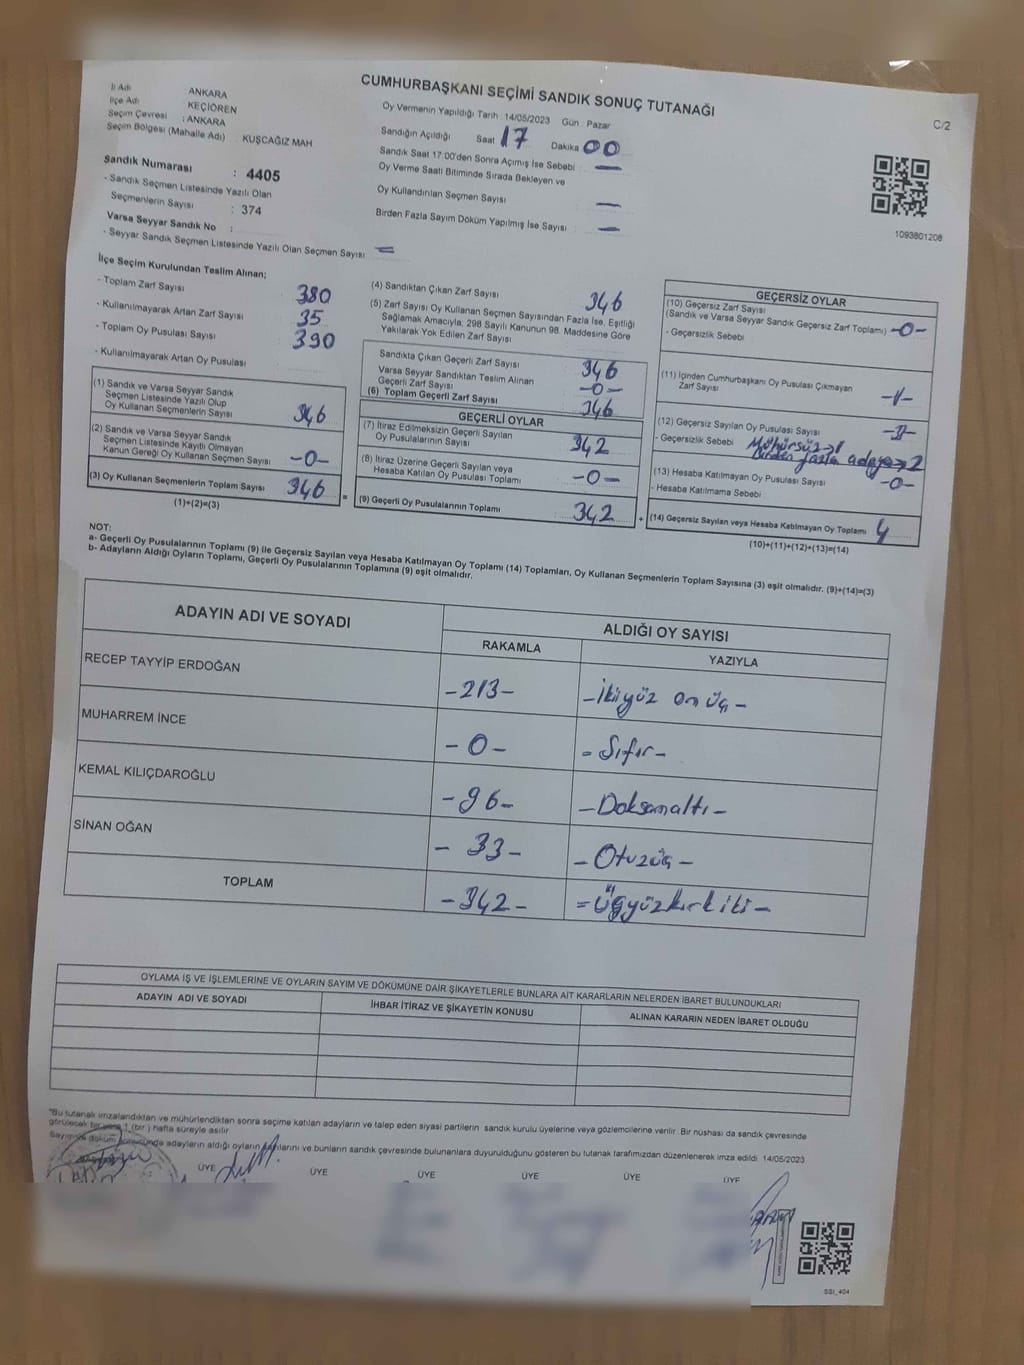 CUMHURBAŞKANI SEÇİMİ SANDIK SONUÇ TUTANAĞI
C/2
İl Adı ANKARA
İlçe Adı KEÇİÖREN
Seçim Çevresi : ANKARA
Seçim Bölgesi (Mahalle Adı) KUŞCAĞIZ MAH
Sandık Numarası : 4405
- Sandık Seçmen Listesinde Yazılı Olan
Seçmenlerin Sayısı : 374
Varsa Seyyar Sandık No :
- Seyyar Sandık Seçmen Listesinde Yazılı Olan Seçmen Sayısı —
Oy Vermenin Yapıldığı Tarih 14/05/2023 Gün Pazar
Sandığın Açıldığı Saat 17 Dakika 00
Sandık Saat 17:00'den Sonra Açımış İse Sebebi —
Oy Verme Saati Bitiminde Sırada Bekleyen ve
Oy Kullandırılan Seçmen Sayısı —
Birden Fazla Sayım Döküm Yapılmış İse Sayısı —
1093801208
İlçe Seçim Kurulundan Teslim Alınan;
- Toplam Zarf Sayısı 380
- Kullanılmayarak Artan Zarf Sayısı 35
- Toplam Oy Pusulası Sayısı 390
- Kullanılmayarak Artan Oy Pusulası
(1) Sandık ve Varsa Seyyar Sandık
Seçmen Listesinde Yazılı Olup
Oy Kullanan Seçmenlerin Sayısı 346
(2) Sandık ve Varsa Seyyar Sandık
Seçmen Listesinde Kayıtlı Olmayan
Kanun Gereği Oy Kullanan Seçmen Sayısı -0-
(3) Oy Kullanan Seçmenlerin Toplam Sayısı 346
(1)+(2)=(3)
(4) Sandıktan Çıkan Zarf Sayısı 346
(5) Zarf Sayısı Oy Kullanan Seçmen Sayısından Fazla İse, Eşitliği
Sağlamak Amacıyla, 298 Sayılı Kanunun 98. Maddesine Göre
Yakılarak Yok Edilen Zarf Sayısı
Sandıkta Çıkan Geçerli Zarf Sayısı 346
Varsa Seyyar Sandıktan Teslim Alınan
Geçerli Zarf Sayısı -0-
(6) Toplam Geçerli Zarf Sayısı 346
GEÇERLİ OYLAR
(7) İtiraz Edilmeksizin Geçerli Sayılan
Oy Pusulalarının Sayısı 342
(8) İtiraz Üzerine Geçerli Sayılan veya
Hesaba Katılan Oy Pusulası Toplamı -0-
= (9) Geçerli Oy Pusulalarının Toplamı 342 +
GEÇERSİZ OYLAR
(10) Geçersiz Zarf Sayısı
(Sandık ve Varsa Seyyar Sandık Geçersiz Zarf Toplamı) -0-
- Geçersizlik Sebebi
(11) İçinden Cumhurbaşkanı Oy Pusulası Çıkmayan
Zarf Sayısı -1-
(12) Geçersiz Sayılan Oy Pusulası Sayısı
- Geçersizlik Sebebi Mühürsüz→1
Birden fazla adaya→2
(13) Hesaba Katılmayan Oy Pusulası Sayısı -0-
- Hesaba Katılmama Sebebi
(14) Geçersiz Sayılan veya Hesaba Katılmayan Oy Toplamı 4
(10)+(11)+(12)+(13)=(14)
NOT:
a- Geçerli Oy Pusulalarının Toplamı (9) ile Geçersiz Sayılan veya Hesaba Katılmayan Oy Toplamı (14) Toplamları, Oy Kullanan Seçmenlerin Toplam Sayısına (3) eşit olmalıdır. (9)+(14)=(3)
b- Adayların Aldığı Oyların Toplamı, Geçerli Oy Pusulalarının Toplamına (9) eşit olmalıdır.
ADAYIN ADI VE SOYADI ALDIĞI OY SAYISI
RAKAMLA YAZIYLA
RECEP TAYYİP ERDOĞAN -213- -İkiyüz on üç-
MUHARREM İNCE -0- -Sıfır-
KEMAL KILIÇDAROĞLU -96- -Doksanaltı-
SİNAN OĞAN -33- -Otuzüç-
TOPLAM -342- =Üçyüzkırkiki-
OYLAMA İŞ VE İŞLEMLERİNE VE OYLARIN SAYIM VE DÖKÜMÜNE DAİR ŞİKAYETLERLE BUNLARA AİT KARARLARIN NELERDEN İBARET BULUNDUKLARI
ADAYIN ADI VE SOYADI İHBAR İTİRAZ VE ŞİKAYETİN KONUSU ALINAN KARARIN NEDEN İBARET OLDUĞU
"Bu tutanak imzalandıktan ve mühürlendikten sonra seçime katılan adayların ve talep eden siyasi partilerin sandık kurulu üyelerine veya gözlemcilerine verilir. Bir nüshası da sandık çevresinde
görülecek bir yere 1 (bir ) hafta süreyle asılır.
Sayım ve döküm sonucunda adayların aldığı oyların sayılarını ve bunların sandık çevresinde bulunanlara duyurulduğunu gösteren bu tutanak tarafımızdan düzenlenerek imza edildi. 14/05/2023
ÜYE ÜYE ÜYE ÜYE ÜYE ÜYE
SSI_404